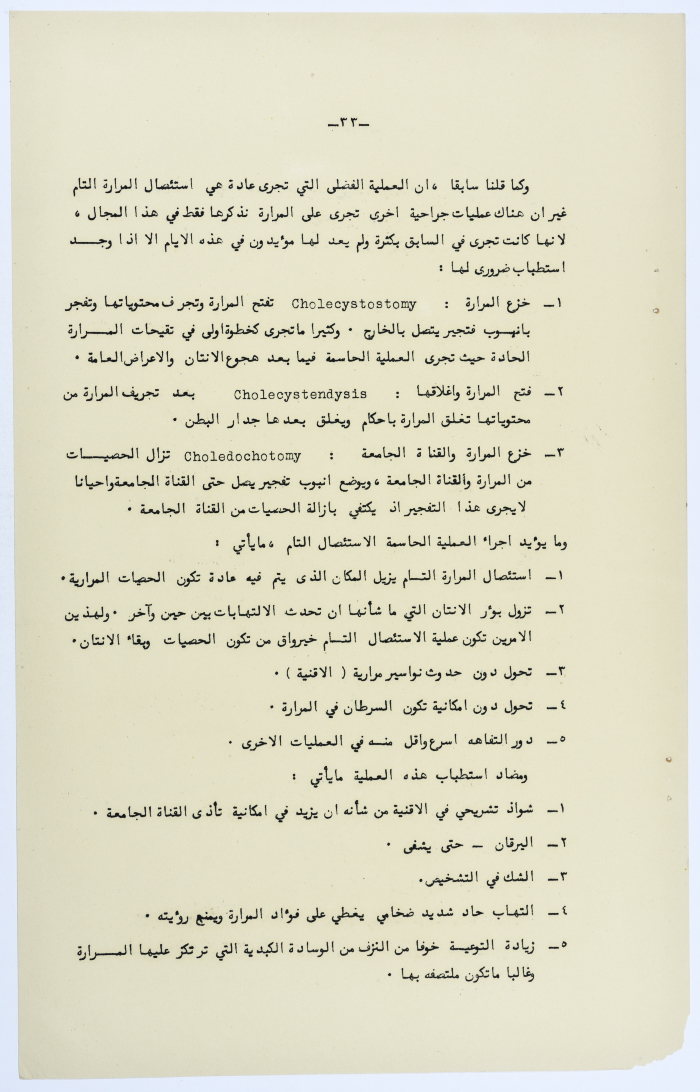 ـ٣٣ـ
وكما قلنا سابقا ، ان العملية الفضلى التي تجرى عادة هي استئصال المرارة التام
غير ان هناك عمليات جراحية اخرى تجرى على المرارة نذكرها فقط في هذا المجال ،
لانها كانت تجرى في السابق بكثرة ولم يعد لها مؤيدون في هذه الايام الا اذا وجـــد
استطباب ضرورى لها :
١ـ خزع المرارة : Cholecystostomy تفتح المرارة وتجرف محتوياتها وتفجر
بانبوب فتجير يتصل بالخارج ٠ وكثيرا ماتجرى كخطوة اولى في تقيحات المـــرارة
الحادة حيث تجرى العملية الحاسمة فيما بعد هجوع الانتان والاعراض العامة ٠
٢ـ فتح المرارة واغلاقها : Cholecystendysis بعد تجريف المرارة من
محتوياتها تغلق المرارة باحكام ويغلق بعدها جدار البطن ٠
٣ـ خزع المرارة والقناة الجامعة : Choledochotomy تزال الحصيـــات
من المرارة والقناة الجامعة ، ويوضع انبوب تفجير يصل حتى القناة الجامعة واحيانا
لايجرى هذا التفجير اذ يكتفي بازالة الحصيات من القناة الجامعة ٠
وما يؤيد اجراء العملية الحاسمة الاستئصال التام ، مايأتي :
١ـ استئصال المرارة التــام يزيل المكان الذى يتم فيه عادة تكون الحصات المرارية ٠
٢ـ تزول بؤر الانتان التي ما شأنها ان تحدث الالتهابات بين حين وآخر ٠ ولهذين
الامرين تكون عملية الاستئصال التــام خير واق من تكون الحصيات وبقاء الانتان ٠
٣ـ تحول دون حدوث نواسير مرارية ( الاقنية ) ٠
٤ـ تحول دون امكانية تكون السرطان في المرارة ٠
٥ـ دور النقاهه اسرع واقل منــه في العمليات الاخرى ٠
ومضاد استطباب هذه العملية مايأتي :
١ـ شواذ تشريحي في الاقنية من شأنه ان يزيد في امكانية تأذى القناة الجامعة ٠
٢ـ اليرقان ـ حتى يشفى ٠
٣ـ الشك في التشخيص ٠
٤ـ التهاب حاد شديد ضخامي يغطي على فؤاد المرارة ويمنع رؤيته ٠
٥ـ زيادة التوعيـة خوفا من النزف من الوسادة الكبدية التي ترتكز عليها المـــرارة
وغالبا ماتكون ملتصقه بها ٠